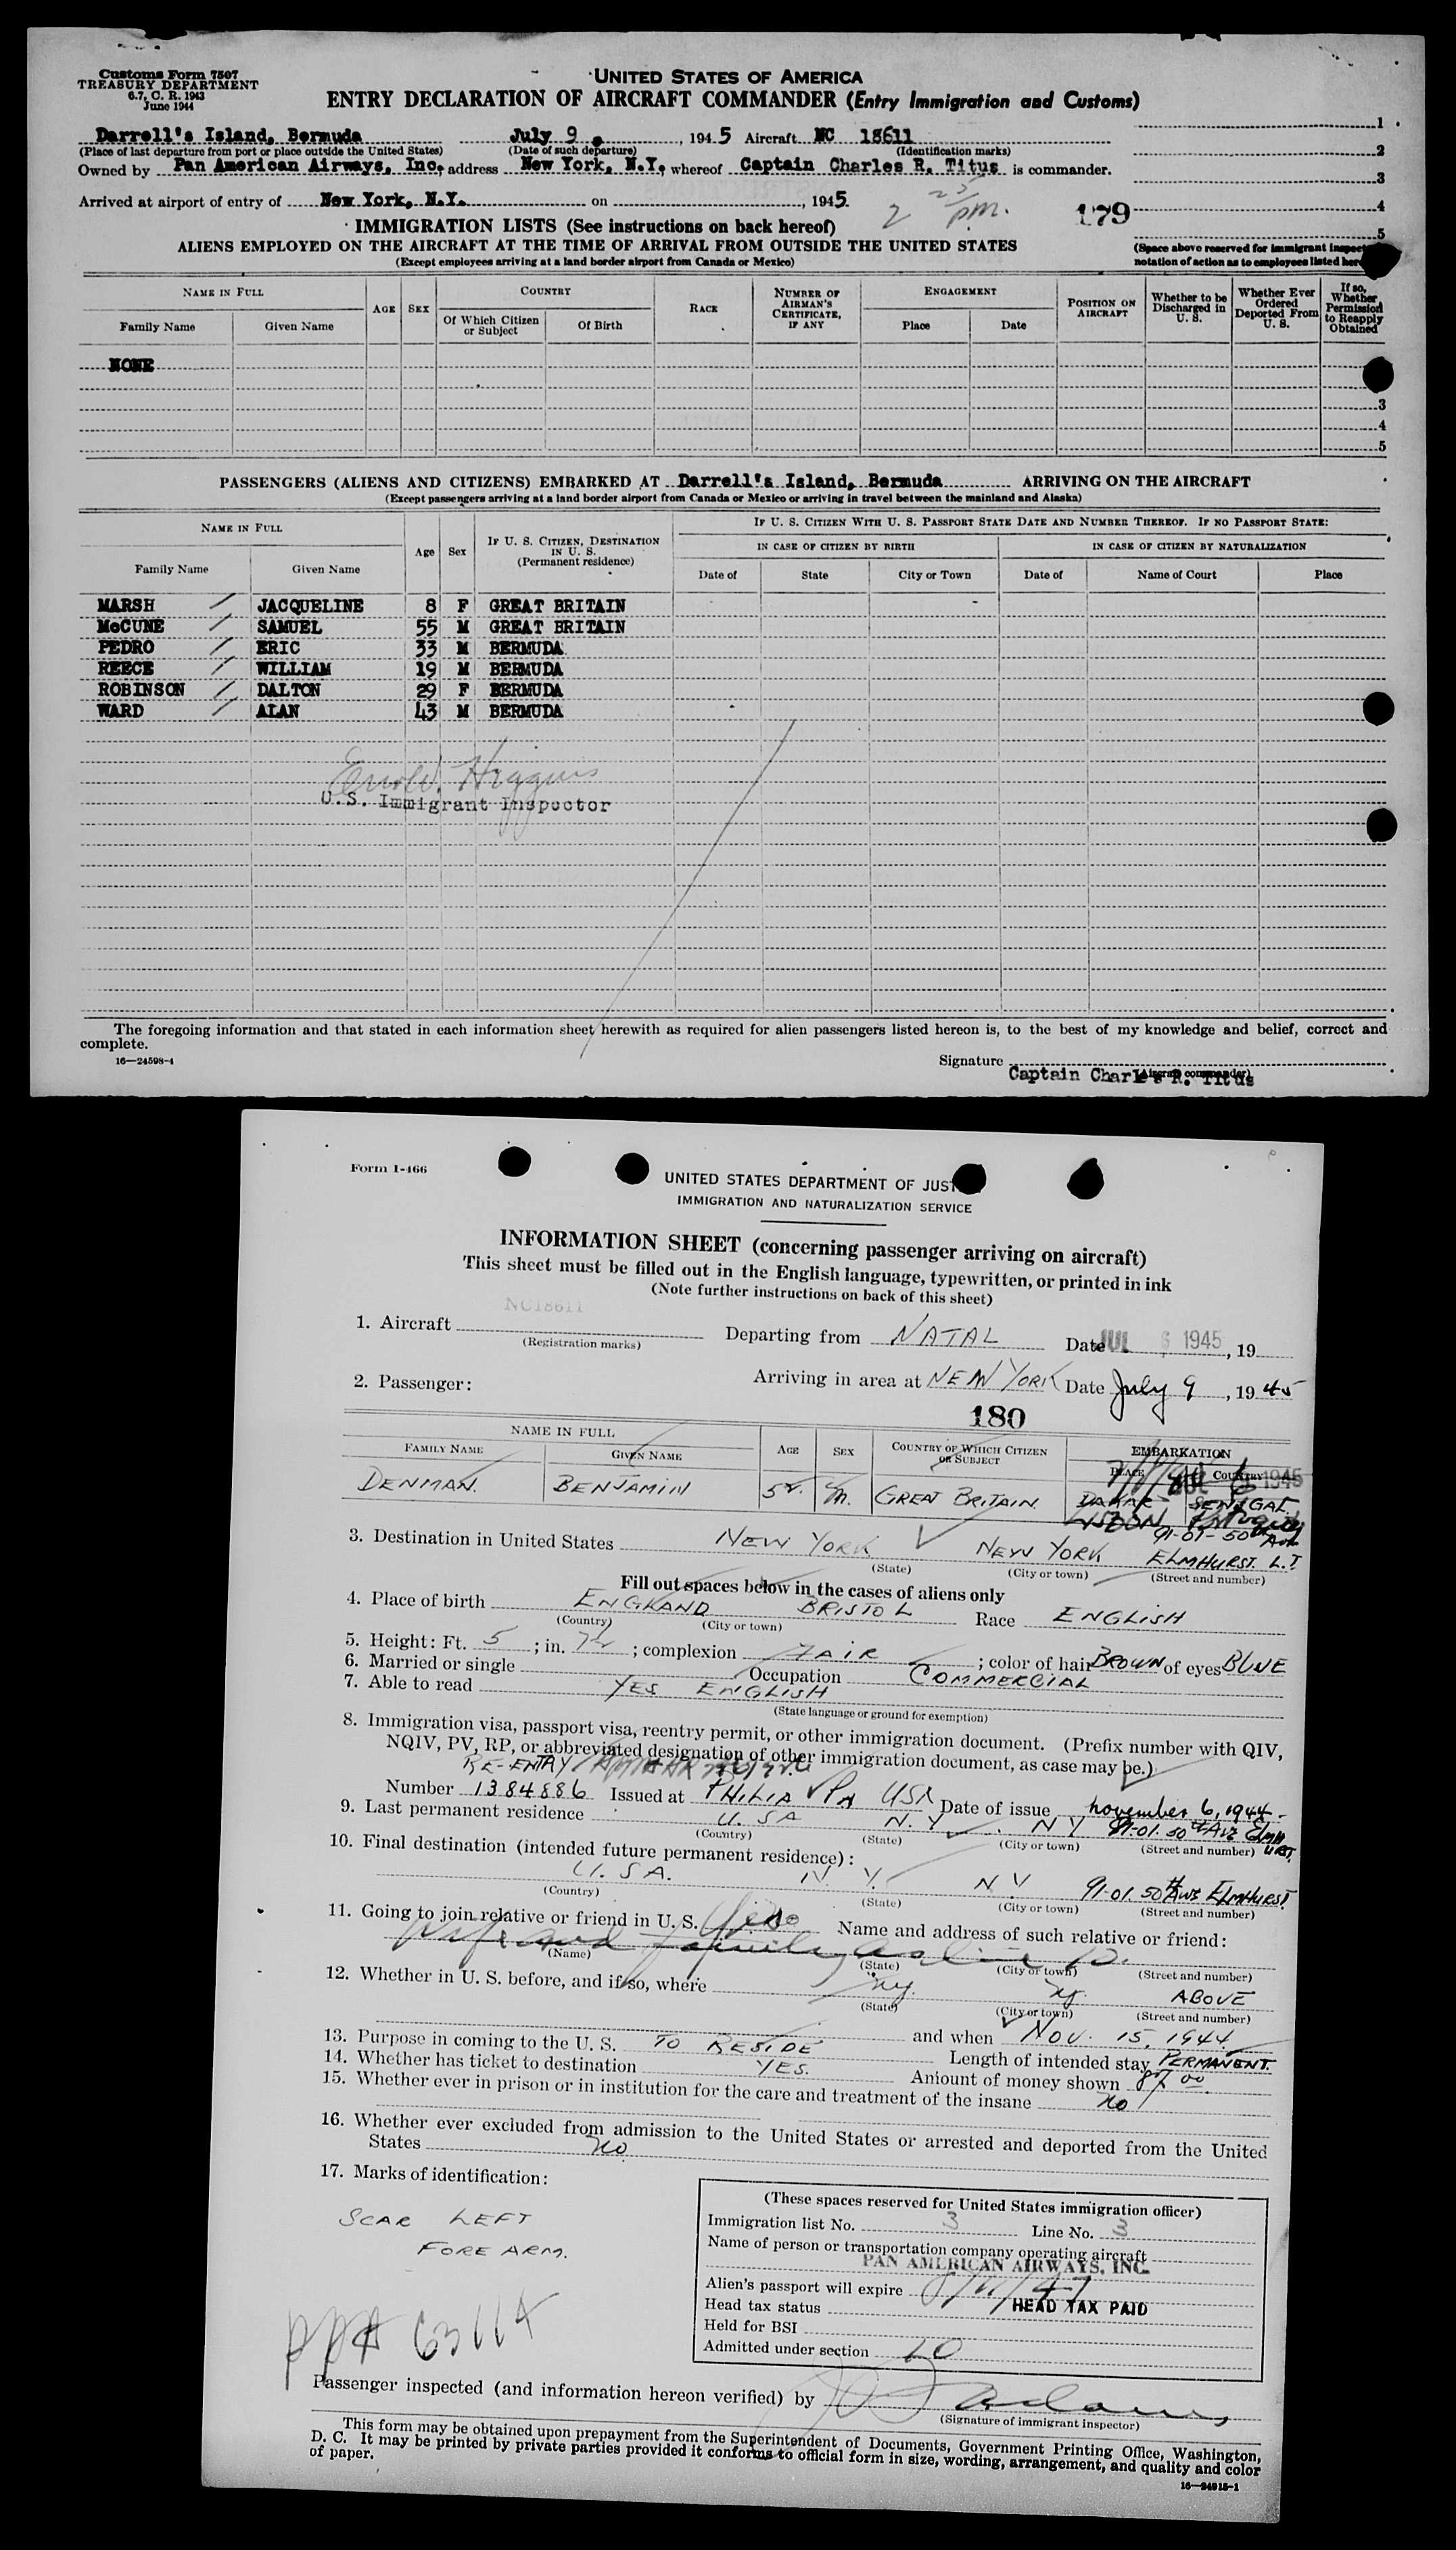 Customs Form 7507
TREASURY DEPARTMENT
6.7, C. R. 1943
June 1944
UNITED STATES OF AMERICA
ENTRY DECLARATION OF AIRCRAFT COMMANDER (Entry Immigration and Customs)
Darrell's Island, Bermuda July 9, 1945 Aircraft NC 18611
(Place of last departure from port or place outside the United States) (Date of such departure) (Identification marks)
Owned by Pan American Airways, Inc. address New York, N.Y. whereof Captain Charles R. Titus is commander.
Arrived at airport of entry of New York, N.Y. on , 1945. 2 25 pm.
179
1
2
3
4
5
IMMIGRATION LISTS (See instructions on back hereof)
ALIENS EMPLOYED ON THE AIRCRAFT AT THE TIME OF ARRIVAL FROM OUTSIDE THE UNITED STATES
(Except employees arriving at a land border airport from Canada or Mexico)
(Space above reserved for immigrant
notation of action as to employees listed
NAME IN FULL AGE SEX COUNTRY RACE NUMBER OF AIRMAN'S CERTIFICATE, IF ANY ENGAGEMENT POSITION ON AIRCRAFT Whether to be Discharged in U. S. Whether Ever Ordered Deported From U. S. If so, Whether Permission to Reapply Obtained
Family Name Given Name Of Which Citizen or Subject Of Birth Place Date
NONE
3
4
5
PASSENGERS (ALIENS AND CITIZENS) EMBARKED AT Darrell's Island, Bermuda ARRIVING ON THE AIRCRAFT
(Except passengers arriving at a land border airport from Canada or Mexico or arriving in travel between the mainland and Alaska)
NAME IN FULL Age Sex IF U. S. CITIZEN, DESTINATION IN U. S. (Permanent residence) IF U. S. CITIZEN WITH U. S. PASSPORT STATE DATE AND NUMBER THEREOF. IF NO PASSPORT STATE:
IN CASE OF CITIZEN BY BIRTH IN CASE OF CITIZEN BY NATURALIZATION
Family Name Given Name Date of State City or Town Date of Name of Court Place
MARSH JACQUELINE 8 F GREAT BRITAIN
McCUNE SAMUEL 55 M GREAT BRITAIN
PEDRO ERIC 33 M BERMUDA
REECE WILLIAM 19 M BERMUDA
ROBINSON DALTON 29 F BERMUDA
WARD ALAN 43 M BERMUDA
Higgins
U.S. Immigrant Inspector
The foregoing information and that stated in each information sheet herewith as required for alien passengers listed hereon is, to the best of my knowledge and belief, correct and
complete.
16—24598-1
Signature
(Aircraft commander)
Captain Charles R. Titus
Form I-466
UNITED STATES DEPARTMENT OF
IMMIGRATION AND NATURALIZATION SERVICE
INFORMATION SHEET (concerning passenger arriving on aircraft)
This sheet must be filled out in the English language, typewritten, or printed in ink
(Note further instructions on back of this sheet)
NC18611
1. Aircraft Departing from NATAL Date JUL 6 1945, 19
(Registration marks)
2. Passenger: Arriving in area at NEW YORK Date July 9, 1945
180
NAME IN FULL AGE SEX COUNTRY OF WHICH CITIZEN OR SUBJECT EMBARKATION
FAMILY NAME GIVEN NAME PLACE COUNTRY
DENMAN BENJAMIN 52 M. GREAT BRITAIN DAKAR SENEGAL
LISBON Portugal
91-01-50th Ave
3. Destination in United States NEW YORK NEW YORK ELMHURST. L.I.
(State) (City or town) (Street and number)
Fill out spaces below in the cases of aliens only
4. Place of birth ENGLAND BRISTOL Race ENGLISH
(Country) (City or town)
5. Height: Ft. 5; in. 7½; complexion FAIR; color of hair BROWN of eyes BLUE
6. Married or single Occupation COMMERCIAL
7. Able to read YES ENGLISH
(State language or ground for exemption)
8. Immigration visa, passport visa, reentry permit, or other immigration document. (Prefix number with QIV,
NQIV, PV, RP, or abbreviated designation of other immigration document, as case may be.)
RE-ENTRY
Number 1384886 Issued at PHILIA PA USA Date of issue november 6, 1944
9. Last permanent residence U.SA N.Y. NY 91-01.50th Ave ELMHURST,
(Country) (State) (City or town) (Street and number)
10. Final destination (intended future permanent residence):
U.SA. N Y. N Y 91-01.50th Ave ELMHURST.
(Country) (State) (City or town) (Street and number)
11. Going to join relative or friend in U. S. Yes Name and address of such relative or friend:
Wife and family as line 10.
(Name) (State) (City or town) (Street and number)
12. Whether in U. S. before, and if so, where ny. ny. ABOVE
(State) (City or town) (Street and number)
and when NOV. 15, 1944
13. Purpose in coming to the U. S. TO RESIDE Length of intended stay PERMANENT.
14. Whether has ticket to destination YES. Amount of money shown 87.00
15. Whether ever in prison or in institution for the care and treatment of the insane no
16. Whether ever excluded from admission to the United States or arrested and deported from the United
States no
17. Marks of identification:
SCAR LEFT
FORE ARM.
(These spaces reserved for United States immigration officer)
Immigration list No. 3 Line No. 3
Name of person or transportation company operating aircraft
PAN AMERICAN AIRWAYS, INC.
Alien's passport will expire
Head tax status HEAD TAX PAID
Held for BSI
Admitted under section
PP# 63114
Passenger inspected (and information hereon verified) by Adams
(Signature of immigrant inspector)
This form may be obtained upon prepayment from the Superintendent of Documents, Government Printing Office, Washington,
D. C. It may be printed by private parties provided it conforms to official form in size, wording, arrangement, and quality and color
of paper.
16—24915-1